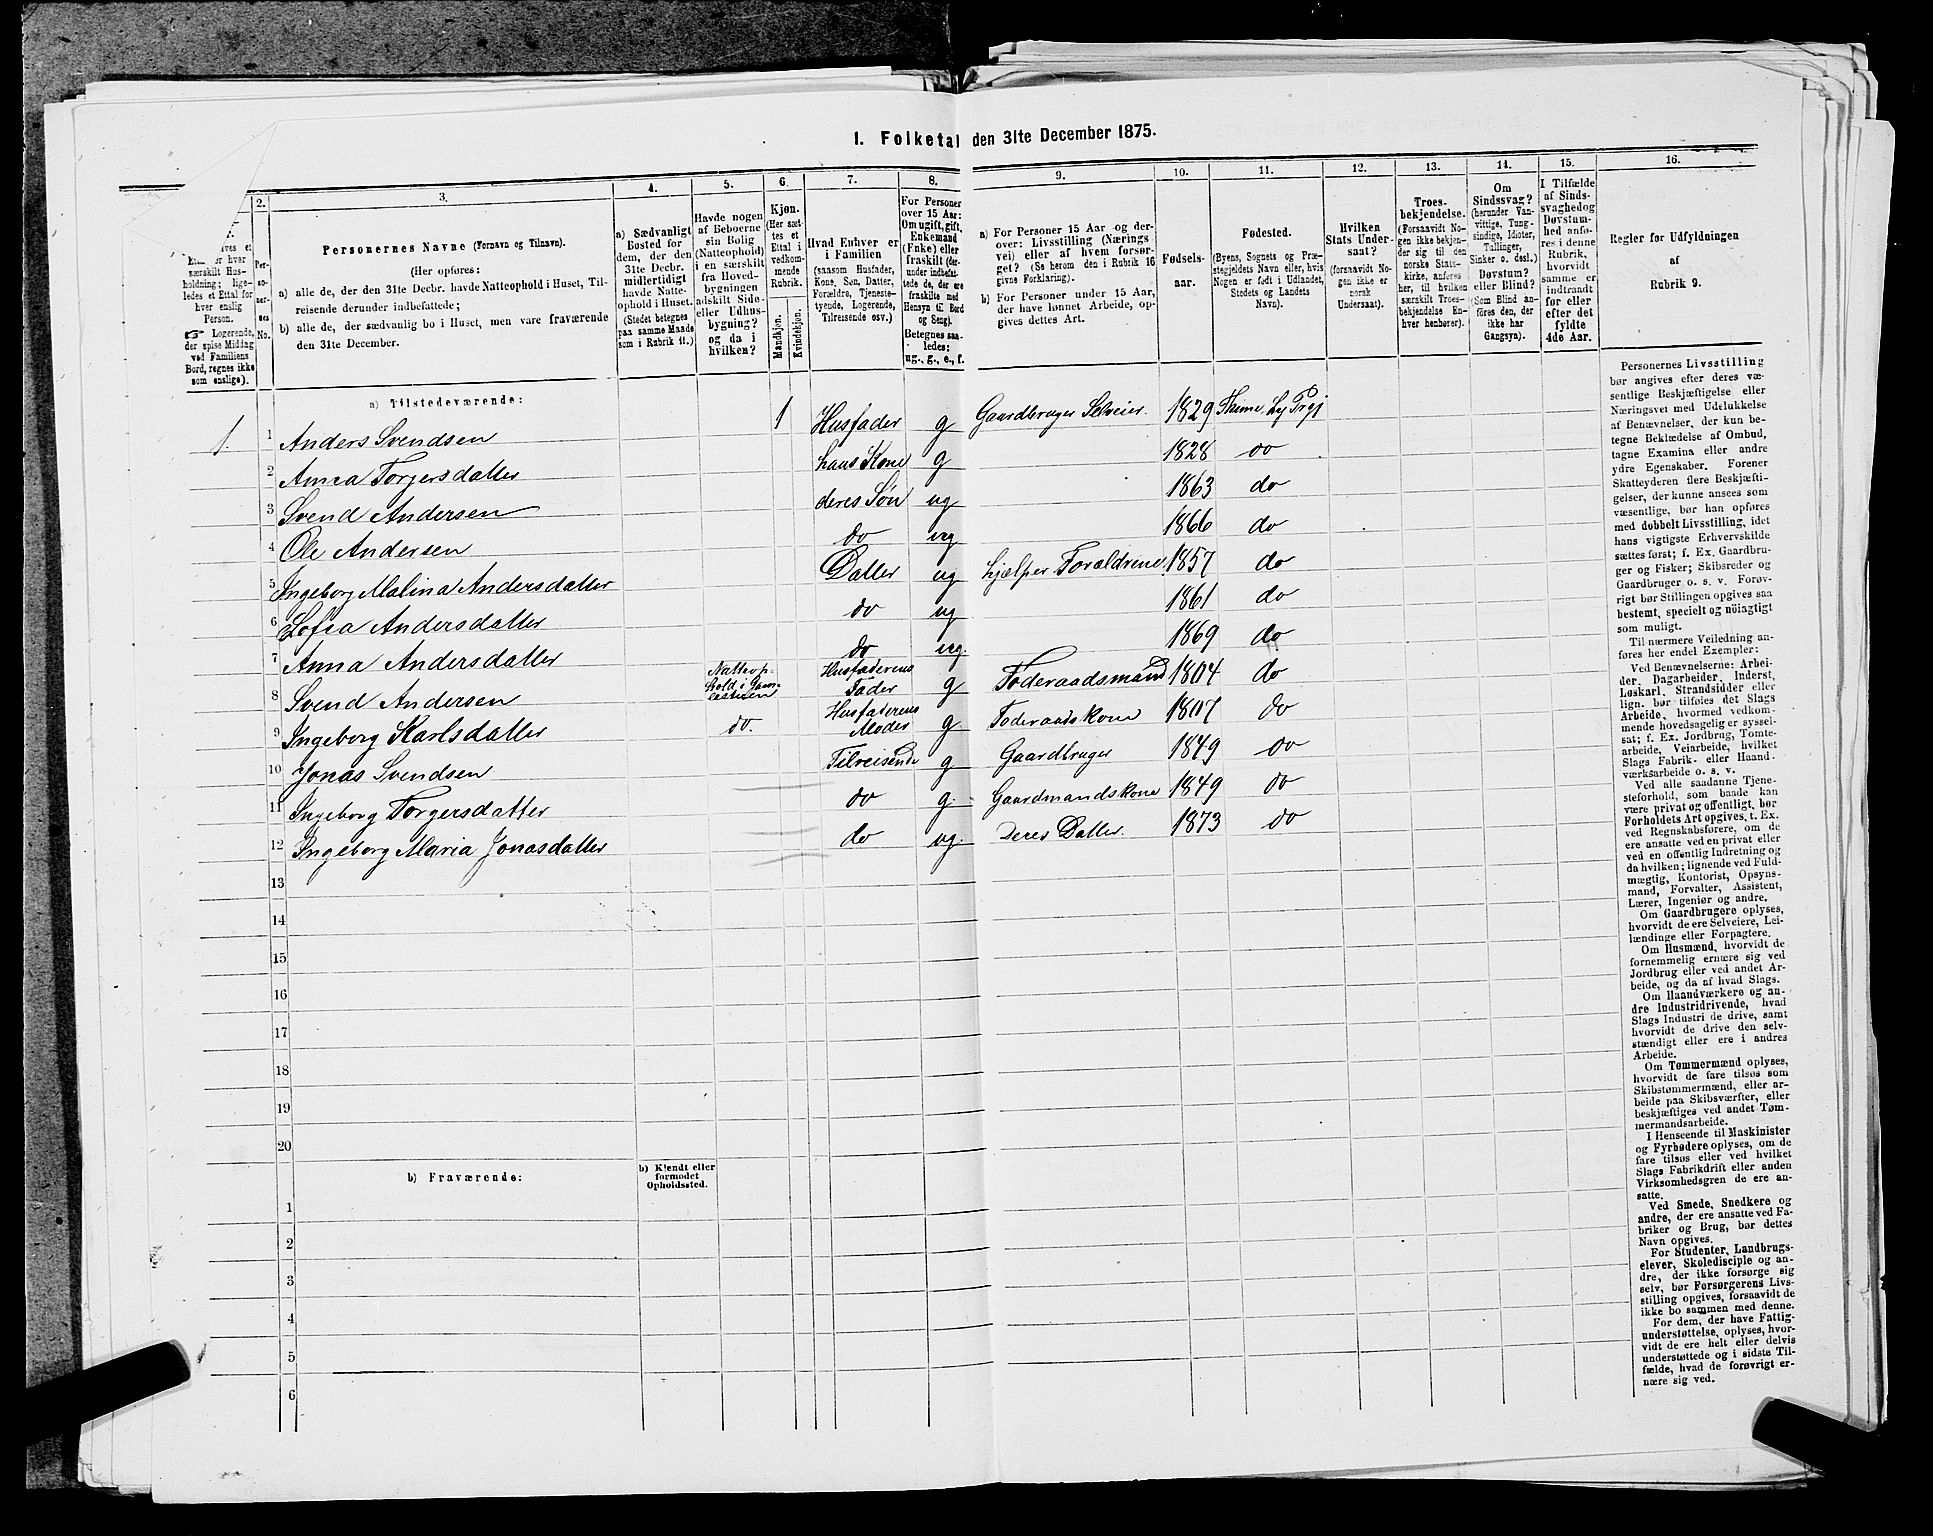 1. Folketal den 31te December 1875.
2. 3. 4. 5. 6. 7. 8. 9. 10. 11. 12. 13. 14. 15. 16.
særskilt Hus-
holdning; lige-
ledes et Ettal for
hver enslig
Person.
☞ Logerende,
der spise Middag
ved Familiens
Bord, regnes ikke
som enslige).
Per-
so-
ner-
nes
No.
Personernes Navne (Fornavn og Tilnavn).
(Her opføres:
a) alle de, der den 31te Decbr. havde Natteophold i Huset, Til-
reisende derunder indbefattede;
b) alle de, der sædvanlig bo i Huset, men vare fraværende
den 31te December.
a) Sædvanligt
Bosted for
dem, der den
31te Decbr.
midlertidigt
havde Natte-
ophold i Huset.
(Stedet betegnes
paa samme Maade
som i Rubrik 11.)
Havde nogen
af Beboerne
sin Bolig
(Natteophold)
i en særskilt
fra Hoved-
bygningen
adskilt Side-
eller Udhus-
bygning?
og da i
hvilken?
Kjøn.
(Her sæt-
tes et
Ettal i
vedkom-
mende
Rubrik.
Mandkjøn.
Kvindekjøn.
Hvad Enhver er
i Familien
(saasom Husfader,
Kone, Søn, Datter,
Forældre, Tjeneste-
tyende, Logerende,
Tilreisende osv.)
For Personer
over 15 Aar:
Om ugift, gift,
Enkemand
(Enke) eller
fraskilt (der-
under indbefat-
tede de, der ere
fraskilte med
Hensyn til Bord
og Seng).
Betegnes saa-
ledes:
ug., g., e., f.
a) For Personer 15 Aar og der-
over: Livsstilling (Nærings
vei) eller af hvem forsør-
get? (Se herom den i Rubrik 16
givne Forklaring).
b) For Personer under 15 Aar,
der have lønnet Arbeide, op-
gives dettes Art.
Fødsels-
aar.
Fødested.
(Byens, Sognets og Præ-
stegjeldets Navn eller, hvis
Nogen er født i Udlandet,
Stedets og Landets
Navn).
Hvilken
Stats Under-
saat?
(forsaavidt No-
gen ikke er
norsk
Undersaat).
Troes-
bekjendelse.
(Forsaavidt No-
gen ikke bekjen-
der sig til den
norske Stats-
kirke, anføres
her, til hvilken
særskilt Troes-
bekjendelse En-
hver henhører).
Om
Sindssvag?
(herunder Van-
vittige, Tung-
sindige, Idioter,
Tullinger,
Sinker o. desl.).
Døvstum?
eller Blind?
(Som Blind an-
føres den, der
ikke har
Gangsyn).
I Tilfælde
af Sinds-
svaghed og
Døvstum-
hed anfø-
res i denne
Rubrik,
hvorvidt
samme er
indtraadt
før eller
efter det
fyldte
4de Aar.
Regler for Udfyldningen
af
Rubrik 9.
a) Tilstedeværende:
1. 1 Anders Svendsen 1 Husfader g Gaardbruger Selveier. 1829
2 Anna Torgersdatter hans Kone g 1828 do
3 Svend Andersen deres Søn ug 1863 do
4 Ole Andersen do ug 1866 do
5 Ingeborg Malina Andersdatter Datter ug hjælper Forældrene. 1857 do
6 Sofia Andersdatter do ug 1861 do
7 Anna Andersdatter do ug. 1869 do
8 Svend Andersen Natteop-
hold i
Husfaderens
Fader g Føderaadsmand 1804 do
9 Ingeborg Karlsdatter do. Husfaderens
Moder g Føderaadskone 1807 do
10 Jonas Svendsen Tilreisende g Gaardbruger 1849 do
11 Ingeborg Torgersdatter do g. Gaardmandskone 1849 do
12 Ingeborg Maria Jonasdatter do ug. Deres Datter. 1873 do
13
14
15
16
17
18
19
20
b) Fraværende:
b) Kjendt eller
formodet
Opholdssted.
1
2
3
4
5
6
Personernes Livsstilling
bør angives efter deres væ-
sentlige Beskjæftigelse eller
Næringsvei med Udelukkelse
af Benævnelser, der kun be-
tegne Beklædelse af Ombud,
tagne Examina eller andre
ydre Egenskaber. Forener
Skatteyderen flere Beskjæfti-
gelser, der kunne ansees som
væsentlige, bør han opføres
med dobbelt Livsstilling, idet
hans vigtigste Erhvervskilde
sættes først; f. Ex. Gaardbru-
ger og Fisker; Skibsreder og
Gaardbruger o. s. v. Forøv-
rigt bør Stillingen opgives saa
bestemt, specielt og nöiagtigt
som muligt.
Til nærmere Veiledning an-
føres her endel Exempler:
Ved Benævnelserne: Arbei-
der, Dagarbeider, Inderst,
Løskarl, Strandsidder eller
lign. bør tilføies det Slags
Arbeide, hvormed vedkom-
mende hovedsagelig er syssel-
sat; f. Ex. Jordbrug, Tomte-
arbeide, Veiarbeide, hvilket
Slags Fabrik- eller Haand-
værksarbeide o. s. v.
Ved alle saadanne Tjene-
steforhold, som baade kan
være privat og offentligt, bør
Forholdets Art opgives, t. Ex.
ved Regnskabsførere, om de
ere ansatte ved en privat eller
ved en offentlig Indretning og
da hvilken; lignende ved Fuld-
mægtig, Kontorist, Opsyns-
mand, Forvalter, Assistent,
Lærer, Ingeniør og andre.
Om Gaardbrugere oplyses,
hvorvidt de ere Selveiere, Lei-
lændinge eller Forpagtere.
Om Husmænd, hvorvidt de
fornemmelig ernære sig ved
Jordbrug eller ved andet Ar-
beide, og da af hvad Slags.
Om Haandværkere og an-
dre Industridrivende, hvad
Slags Industri de drive, samt
hvorvidt de drive den selv-
stændigt eller ere i andres
Arbeide.
Om Tømmermænd oplyses,
hvorvidt de fare tilsøs som
Skibstømmermænd, eller ar-
beide paa Skibsværfter, eller
beskjæftiges ved andet Tøm-
mermandsarbeide.
I Henseende til Maskinister
og Fyrbødere oplyses, om de
fare tilsøs eller ved hvilket
Slags Fabrikdrift eller anden
Virksomhedsgren de ere an-
satte.
Ved Smede, Snedkere og
andre, der ere ansatte ved Fa-
briker og Brug, bør dettes
Navn opgives.
For Studenter, Landbrugs-
elever, Skoledisciple og an-
dre, der ikke forsørge sig
selv, bør Forsørgerens Livs-
stilling opgives, forsaavidt de
ikke bo sammen med denne.
For dem, der have Fattig-
understøttelse, oplyses, hvor-
vidt de ere helt eller delvis
understøttede og i sidste Til-
fælde, hvad de forøvrigt er-
nære sig ved.